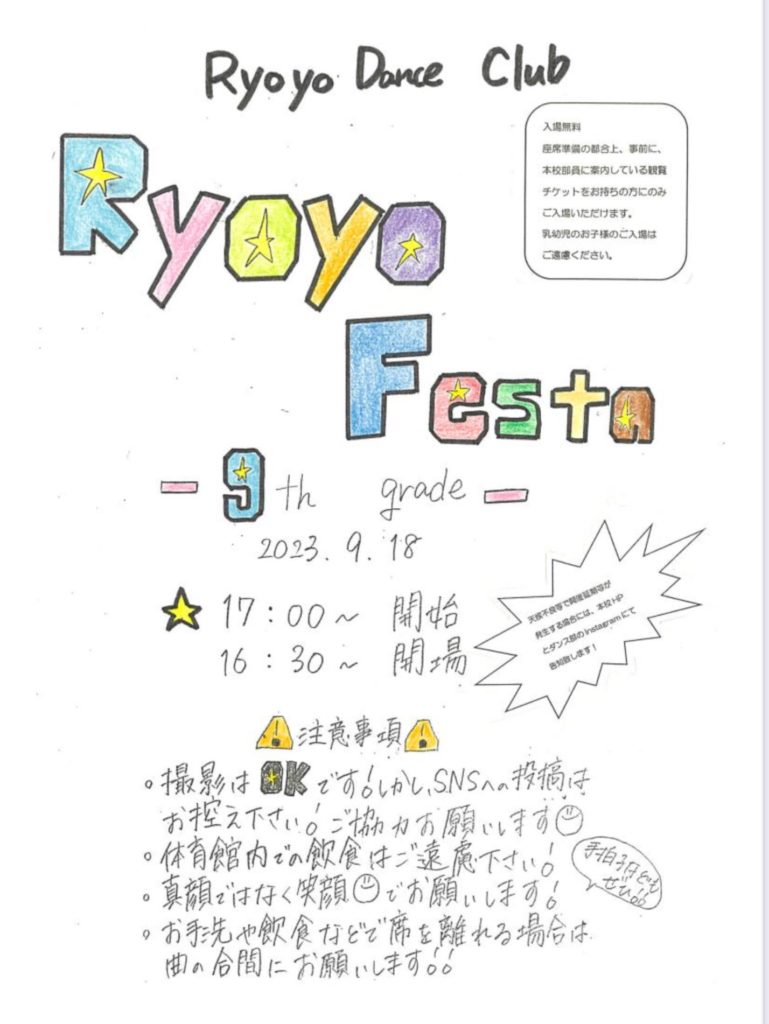 Ryoyo Dance Club
入場無料
座席準備の都合上、事前に、
本校部員に案内している観覧
チケットをお持ちの方にのみ
ご入場いただけます。
乳幼児のお子様のご入場は
ご遠慮ください。
Ryoyo
Festa
- 9th grade -
2023.9.18
17:00~ 開始
16:30~ 開場
天候不良等で開催延期等が
発生する場合には、本校HP
とダンス部のInstagramにて
告知致します！
注意事項
・撮影はOKです!しかし、SNSへの投稿は
お控え下さい!ご協力お願いします
・体育館内での飲食はご遠慮下さい!
・真顔ではなく笑顔でお願いします!
手拍子も
ぜひ!!
・お手洗や飲食などで席を離れる場合は
曲の合間にお願いします!!